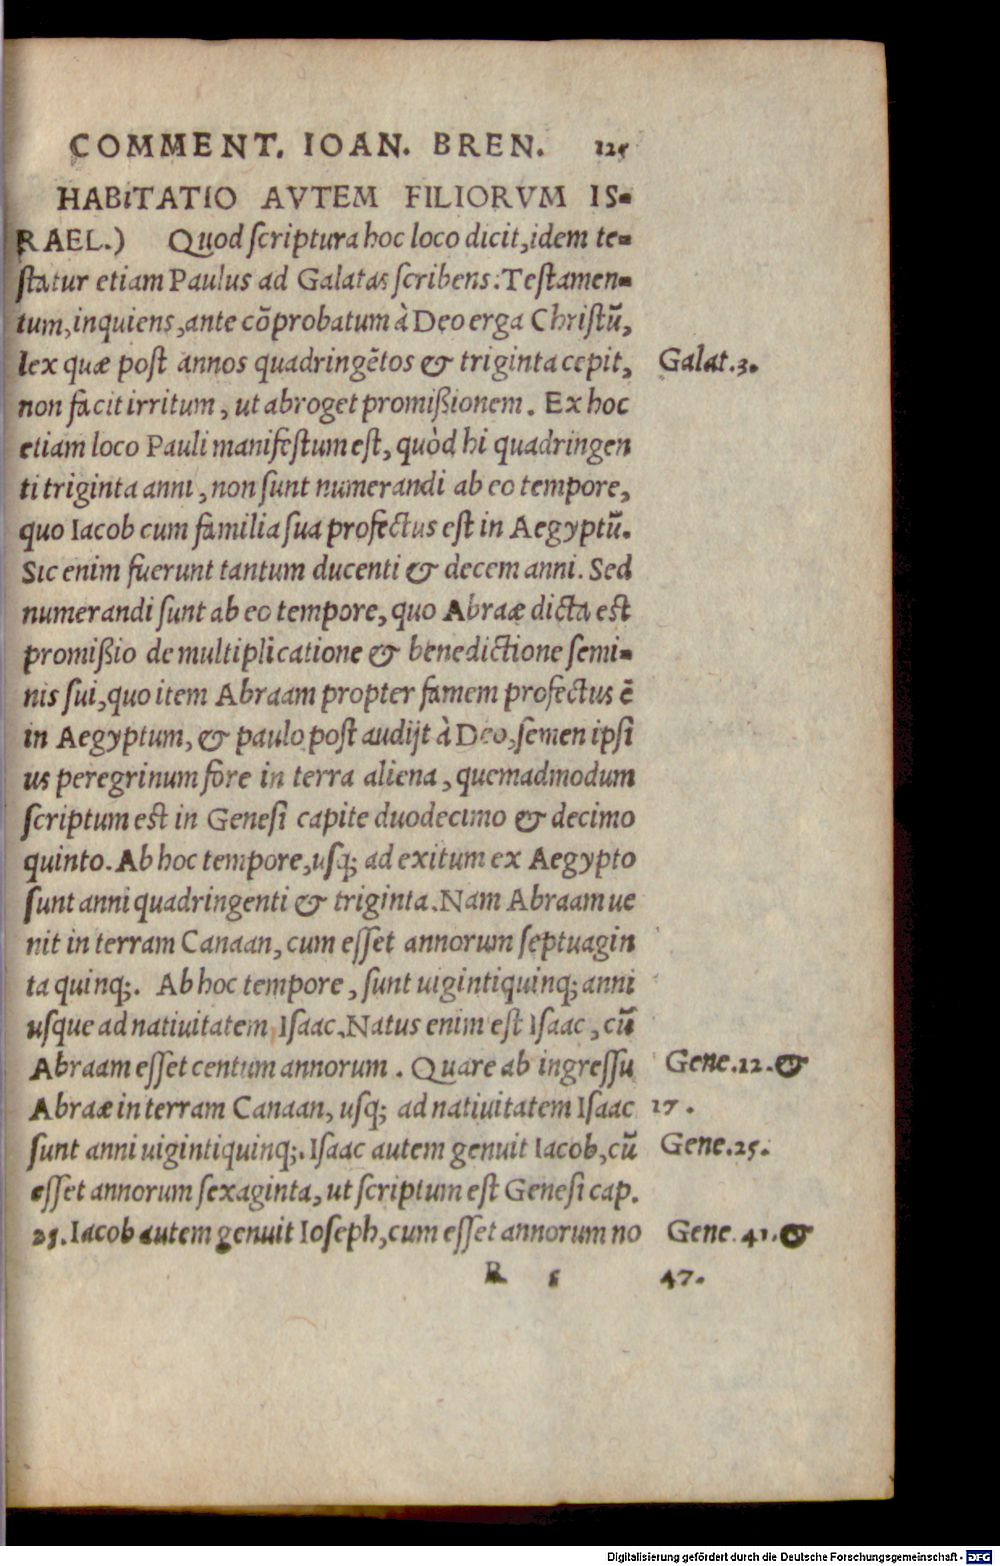 COMMENT. IOAN. BREN. 125
HABITATIO AVTEM FILIORVM IS-
RAEL.) Quod scriptura hoc loco dicit, idem te-
statur etiam Paulus ad Galatas scribens: Testamen-
tum, inquiens, ante cõprobatum à Deo erga Christũ,
lex quæ post annos quadringẽtos & triginta cepit,
Galat.3.
non facit irritum, ut abroget promißionem. Ex hoc
etiam loco Pauli manifestum est, quòd hi quadringen
ti triginta anni, non sunt numerandi ab eo tempore,
quo Iacob cum familia sua profectus est in Aegyptũ.
Sic enim fuerunt tantum ducenti & decem anni. Sed
numerandi sunt ab eo tempore, quo Abraæ dicta est
promißio de multiplicatione & benedictione semi-
nis sui, quo item Abraam propter famem profectus ẽ
in Aegyptum, & paulo post audijt à Deo, semen ipsi
us peregrinum fore in terra aliena, quemadmodum
scriptum est in Genesi capite duodecimo & decimo
quinto. Ab hoc tempore, usq; ad exitum ex Aegypto
sunt anni quadringenti & triginta. Nam Abraam ue
nit in terram Canaan, cum esset annorum septuagin
ta quinq;. Ab hoc tempore, sunt uigintiquinq; anni
usque ad natiuitatem Isaac. Natus enim est Isaac, cũ
Abraam esset centum annorum. Quare ab ingressu
Gene.12.&
Abraæ in terram Canaan, usq; ad natiuitatem Isaac
17.
sunt anni uigintiquinq;. Isaac autem genuit Iacob, cũ
Gene.25.
esset annorum sexaginta, ut scriptum est Genesi cap.
25. Iacob autem genuit Ioseph, cum esset annorum no
Gene.41.&
R 5
47.
Digitalisierung gefördert durch die Deutsche Forschungsgemeinschaft - DFG